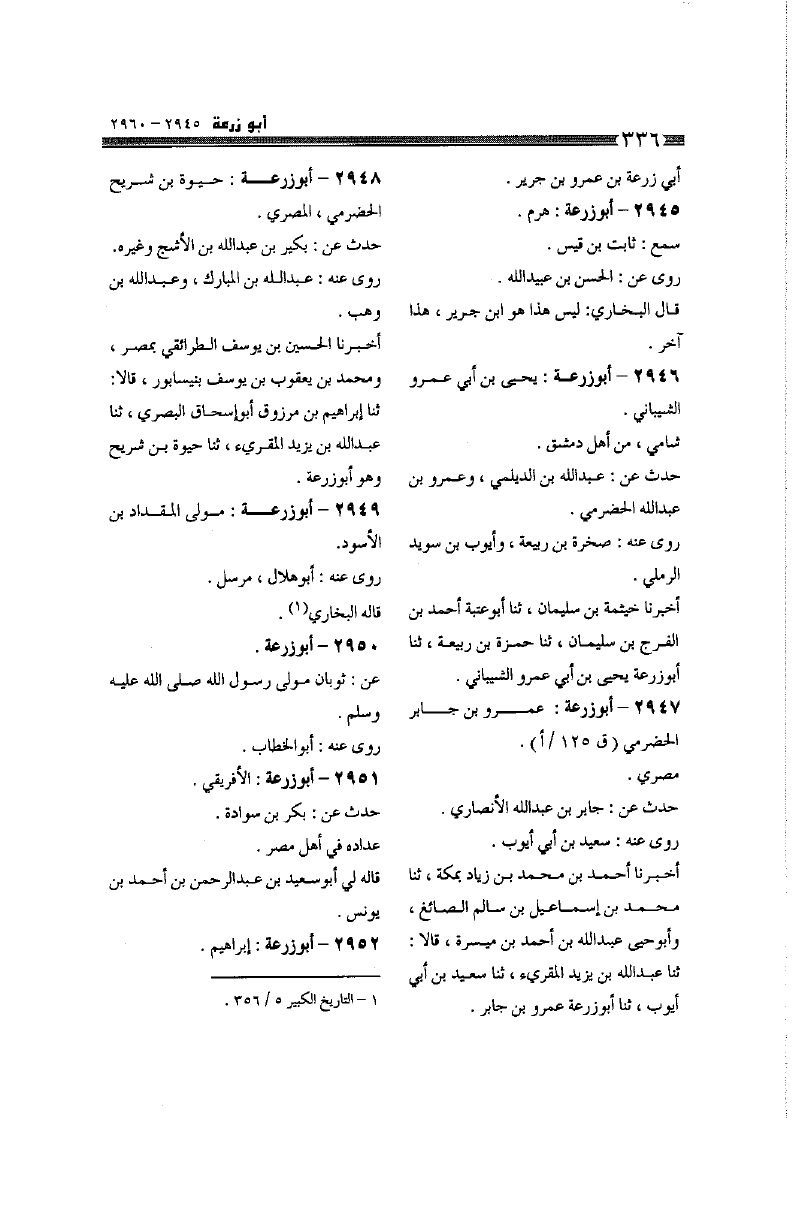 أبو زرعة ٢٩٤٥ – ٢٩٦٠
٣٣٦
أبي زرعة بن عمرو بن جرير .
٢٩٤٥ – أبوزرعة : هرم .
سمع : ثابت بن قيس .
روى عن : الحسن بن عبيدالله .
قال البخاري: ليس هذا هو ابن جرير ، هذا
آخر .
٢٩٤٦ – أبوزرعة : يحيى بن أبي عمرو
الشيباني .
شامي ، من أهل دمشق .
حدث عن : عبدالله بن الديلمي ، وعمرو بن
عبدالله الحضرمي .
روى عنه : صخرة بن ربيعة ، وأيوب بن سويد
الرملي .
أخبرنا خيثمة بن سليمان ، ثنا أبوعتبة أحمد بن
الفرج بن سليمان ، ثنا حمزة بن ربيعة ، ثنا
أبوزرعة يحيى بن أبي عمرو الشيباني .
٢٩٤٧ – أبوزرعة : عمرو بن جابر
الحضرمي ( ق ١٢٥ / أ ) .
مصري .
حدث عن : جابر بن عبدالله الأنصاري .
روى عنه : سعيد بن أبي أيوب .
أخبرنا أحمد بن محمد بن زياد بمكة ، ثنا
محمد بن إسماعيل بن سالم الصائغ ،
وأبوحيى عبدالله بن أحمد بن ميسرة ، قالا :
ثنا عبدالله بن يزيد المقريء ، ثنا سعيد بن أبي
أيوب ، ثنا أبوزرعة عمرو بن جابر .
٢٩٤٨ – أبوزرعة : حيوة بن شريح
الحضرمي ، المصري .
حدث عن : بكير بن عبدالله بن الأشج وغيره.
روى عنه : عبدالله بن المبارك ، وعبدالله بن
وهب .
أخبرنا الحسين بن يوسف الطرائفي بمصر ،
ومحمد بن يعقوب بن يوسف بنيسابور ، قالا:
ثنا إبراهيم بن مرزوق أبوإسحاق البصري ، ثنا
عبدالله بن يزيد المقريء ، ثنا حيوة بن شريح
وهو أبوزرعة .
٢٩٤٩ – أبوزرعة : مولى المقداد بن
الأسود.
روى عنه : أبوهلال ، مرسل .
قاله البخاري(١) .
٢٩٥٠ – أبوزرعة .
عن : ثوبان مولى رسول الله صلى الله عليه
وسلم .
روى عنه : أبوالخطاب .
٢٩٥١ – أبوزرعة : الأفريقي .
حدث عن : بكر بن سوادة .
عداده في أهل مصر .
قاله لي أبوسعيد بن عبدالرحمن بن أحمد بن
يونس .
٢٩٥٢ – أبوزرعة : إبراهيم .
١ – التاريخ الكبير ٥ / ٣٥٦ .